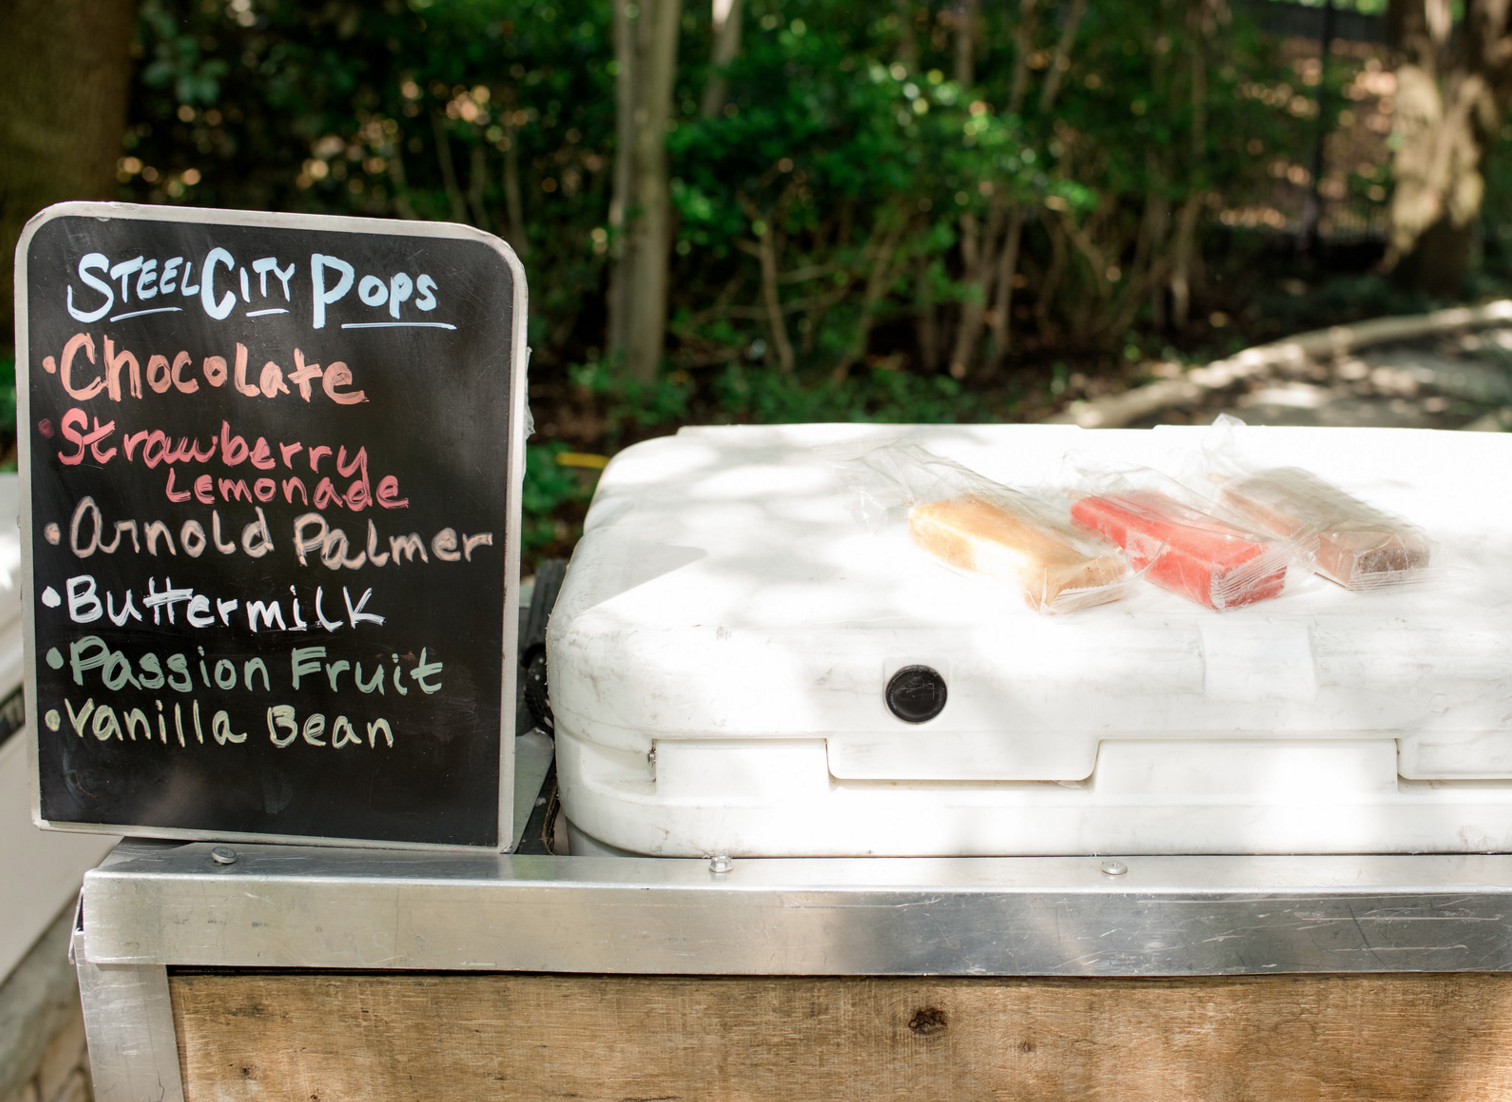 STEEL CITY POPS
• Chocolate
• Strawberry
Lemonade
• Arnold Palmer
• Buttermilk
• Passion Fruit
• Vanilla Bean